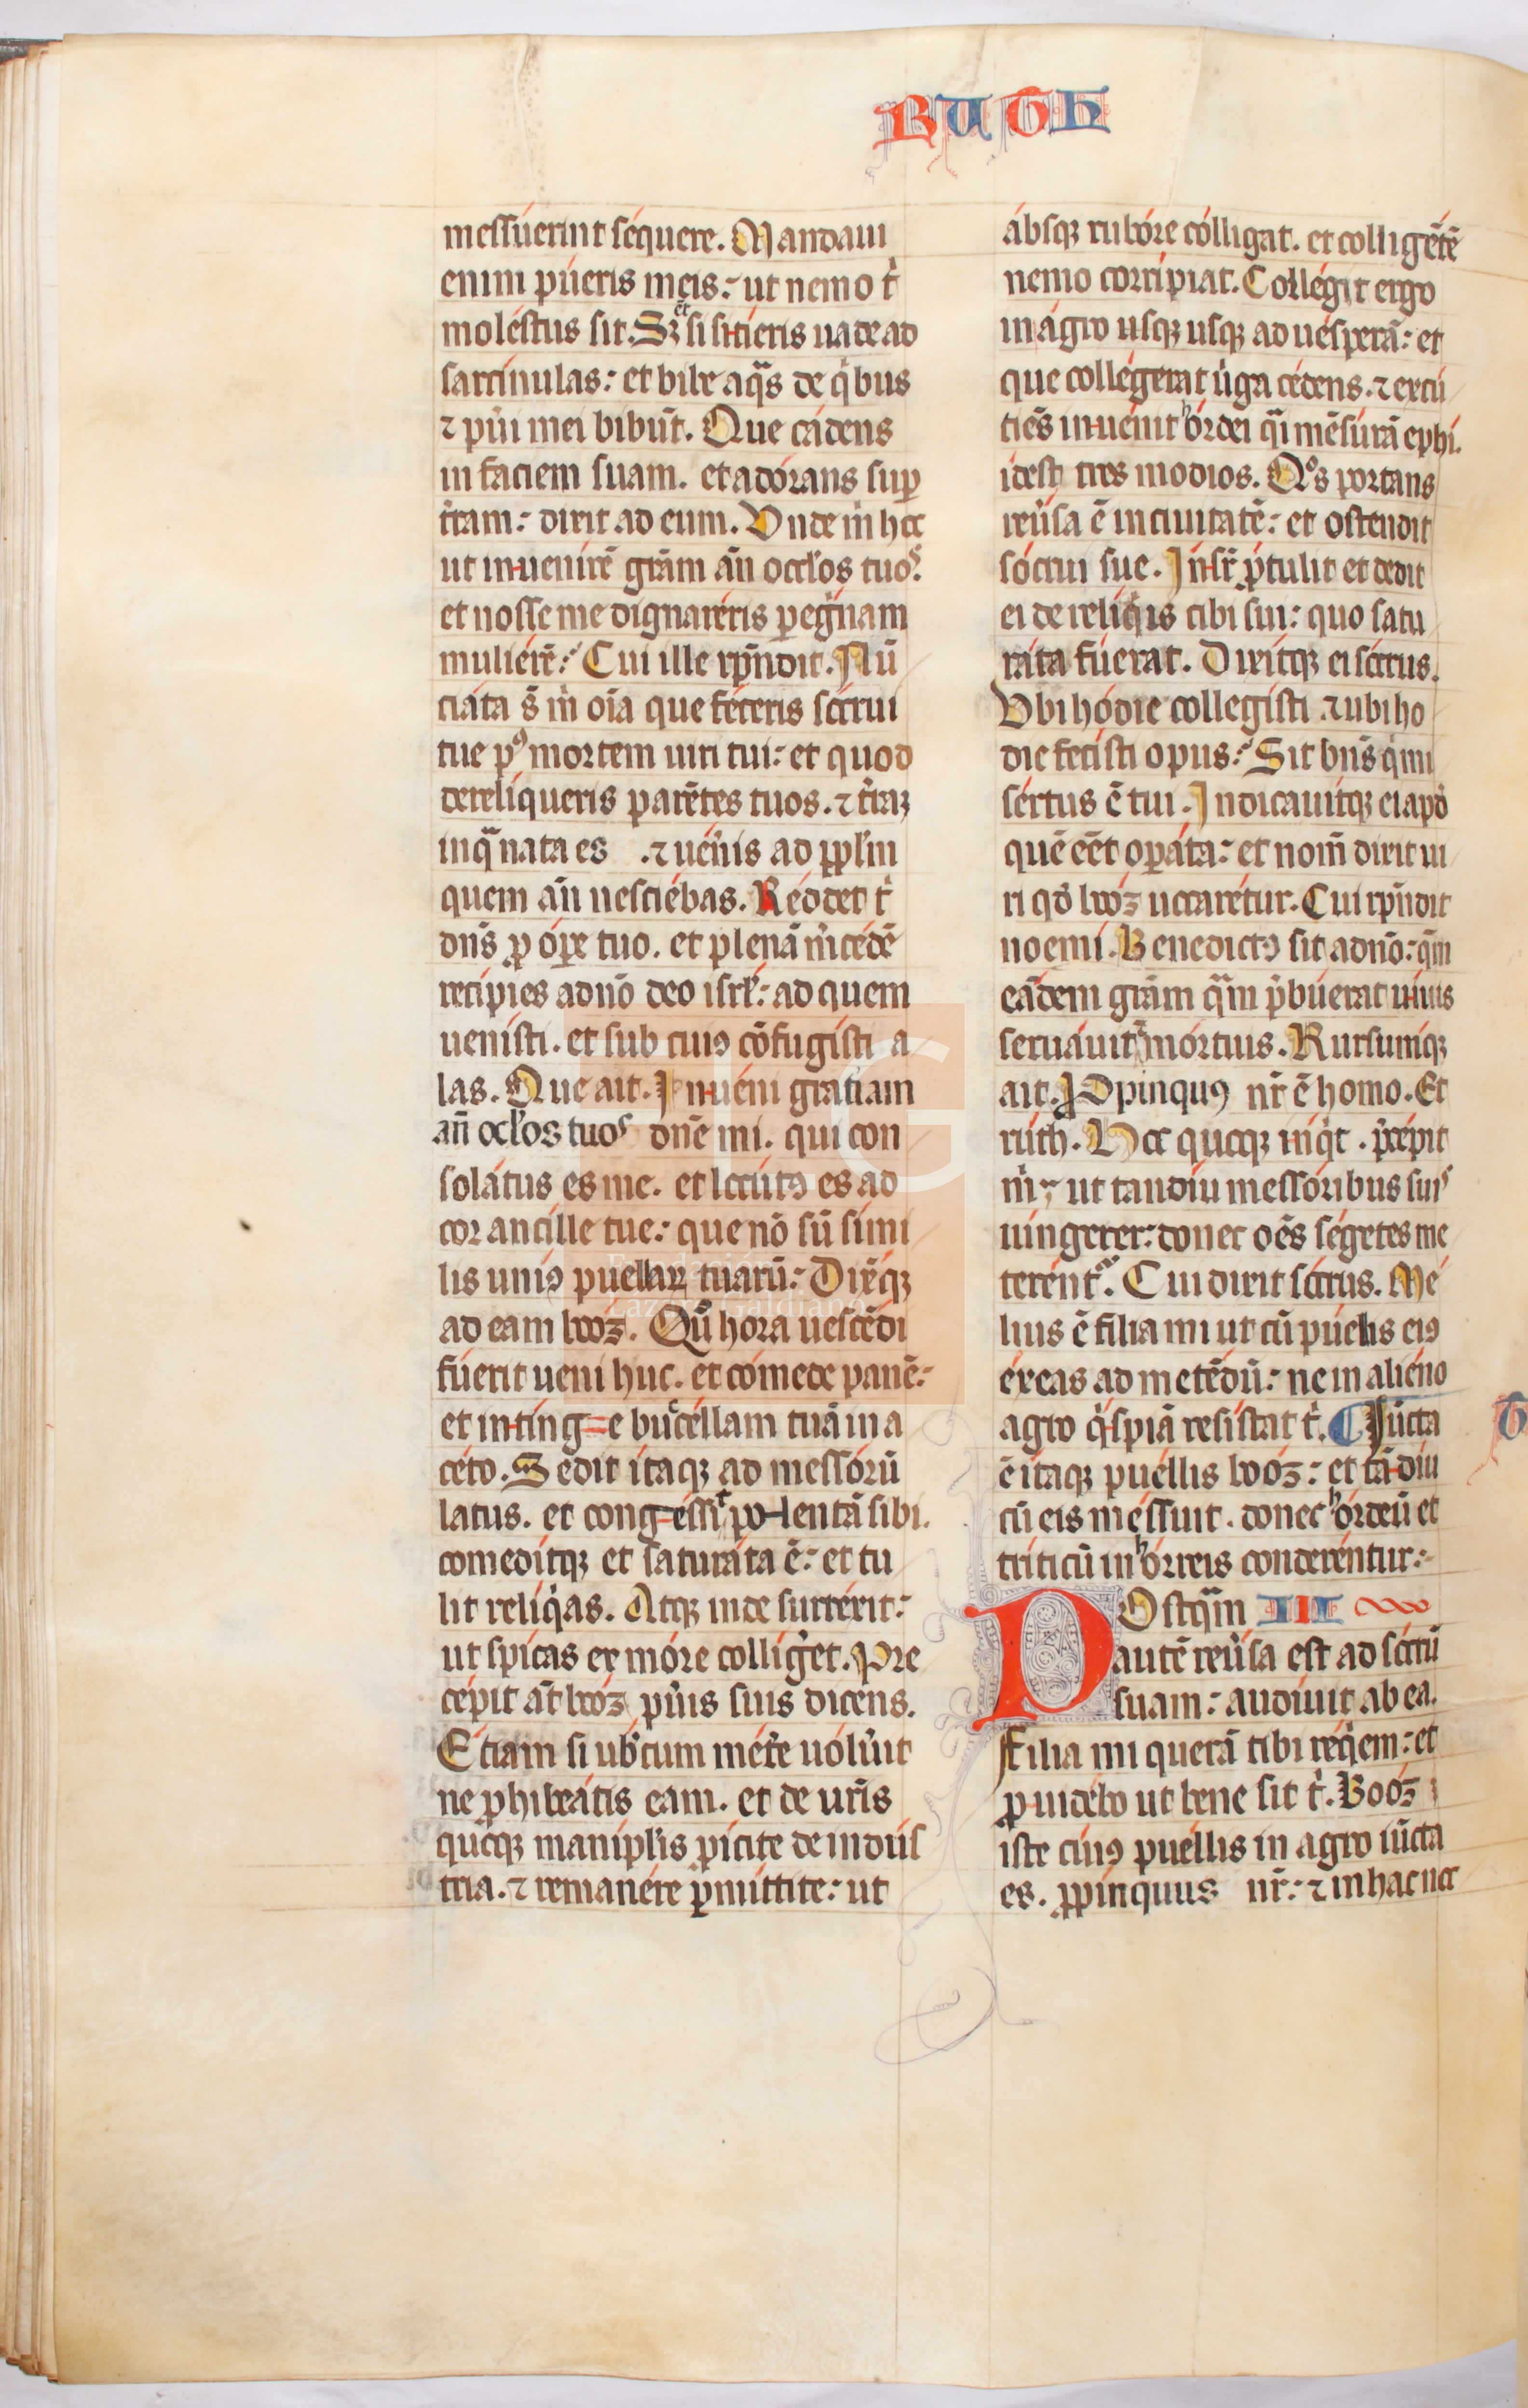 RUTH
messuerint sequere. Mandaui
enim pueris meis: ut nemo t̾
molestus sit. Sꝫ et si sitieris uade ad
sarcinulas: et bibe aqᷓs de qͥbus
⁊ pu̾i mei bibu̅t. Que cadens
in faciem suam. et adorans suꝑ
t̾ram: dixit ad eum. Unde m̾ hoc
ut inuenire̅ gr̅am an̅ oc̾los tuoˢ.
et nosse me dignareris ꝑeg̾nam
muliere̅: Cui ille rn̅dit. Nu̅
ciata s̅ m̾ oi̅a que feceris socrui
tue pꝰ mortem uiri tui: et quod
dereliqueris pare̅tes tuos. ⁊ t̾raꝫ
in qᷓ nata es .⁊ uen̾is ad ppl̾m
quem an̅ nesciebas. Reddet t̾
dn̅s ꝓ oꝑe tuo. et plena̅ m̾cede̅
recipies a dn̅o deo isrl̾: ad quem
uenisti. et sub cuiꝰ co̅fugisti a
las. Que ait. Inueni gratiam
an̅ oc̾los tuoˢ dn̅e mi. qui con
solatus es me. et locutꝰ es ad
cor ancille tue: que no̅ su̅ simi
lis uniꝰ puellaꝝ tuaru̅: Dix̾qꝫ
ad eam booz. Qu̅ hora uesce̅di
fuerit ueni huc. et comede pane̅:
et inting=e bucellam tua̅ in a
ceto. Sedit itaqꝫ ad messoru̅
latus. et congessit polenta̅ sibi.
comeditqꝫ et saturata e̅: et tu
lit reliqͥas. Atqꝫ inde surrexit:
ut spicas ex more collig̾et. Pre
cepit au̅t booz pu̾is suis dicens.
Etiam si uob̾cum met̾e uolu̾it
ne ꝓhibeatis eam. et de ur̅is
quoqꝫ manipl̾is ꝓicite de indus
tria. ⁊ remanere ꝑmittite: ut
absqꝫ rubore colligat. et collige̅te̅
nemo corripiat. Collegit ergo
in agro usqꝫ usqꝫ ad uespera̅: et
que collegerat u̾ga cedens. ⁊ excu
cie̅s inuenit hordei qᷓi me̅sura̅ ephi.
idest tres modios. Qͦs portans
reu̾sa e̅ in ciuitate̅: et ostendit
socrui sue. Insꝑ ꝓtulit et dedit
ei de reliqͥis cibi sui: quo satu
rata fuerat. Dixitqꝫ ei socrus.
Ubi hodie collegisti .⁊ ubi ho
die fecisti opus: Sit bn̅s qͥ mi
sertus e̅ tui. Indicauitqꝫ ei apd̾
que̅ e̅et oꝑata: et nom̅ dixit ui
ri qd̾ booz uocaretur. Cui rn̅dit
noemi. Benedictꝰ sit a dn̅o: qm̅
eadem gr̅am qᷓm p̾buerat uiuis
seruauit ⁊ mortuis. Rursumqꝫ
ait. Ꝓpinquꝰ nr̅ e̅ homo. Et
ruth. Hoc quoqꝫ inqͥt. p̾cepit
m̾: ut tandiu messoribus suiˢ
iungerer: donec oe̅s segetes me
terent᷑. Cui dixit socrus. Me
lius e̅ filia mi ut cu̅ puellis eiꝰ
exeas ad mete̅du̅: ne in alieno
agro qͥspia̅ resistat t̾. ¶ Iu̅cta
e̅ itaqꝫ puellis booz: et ta̅diu
cu̅ eis messuit. donec hordeu̅ et
triticu̅ in horreis conderentur:
POstqᷓm III
aute̅ reu̾sa est ad socru̅
suam: audiuit ab ea.
Filia mi quera̅ tibi reqͥem: et
ꝓuidebo ut bene sit t̾. Booz
iste cuiꝰ puellis in agro iu̅cta
es. ꝓpinquus nr̅: ⁊ in hac noc